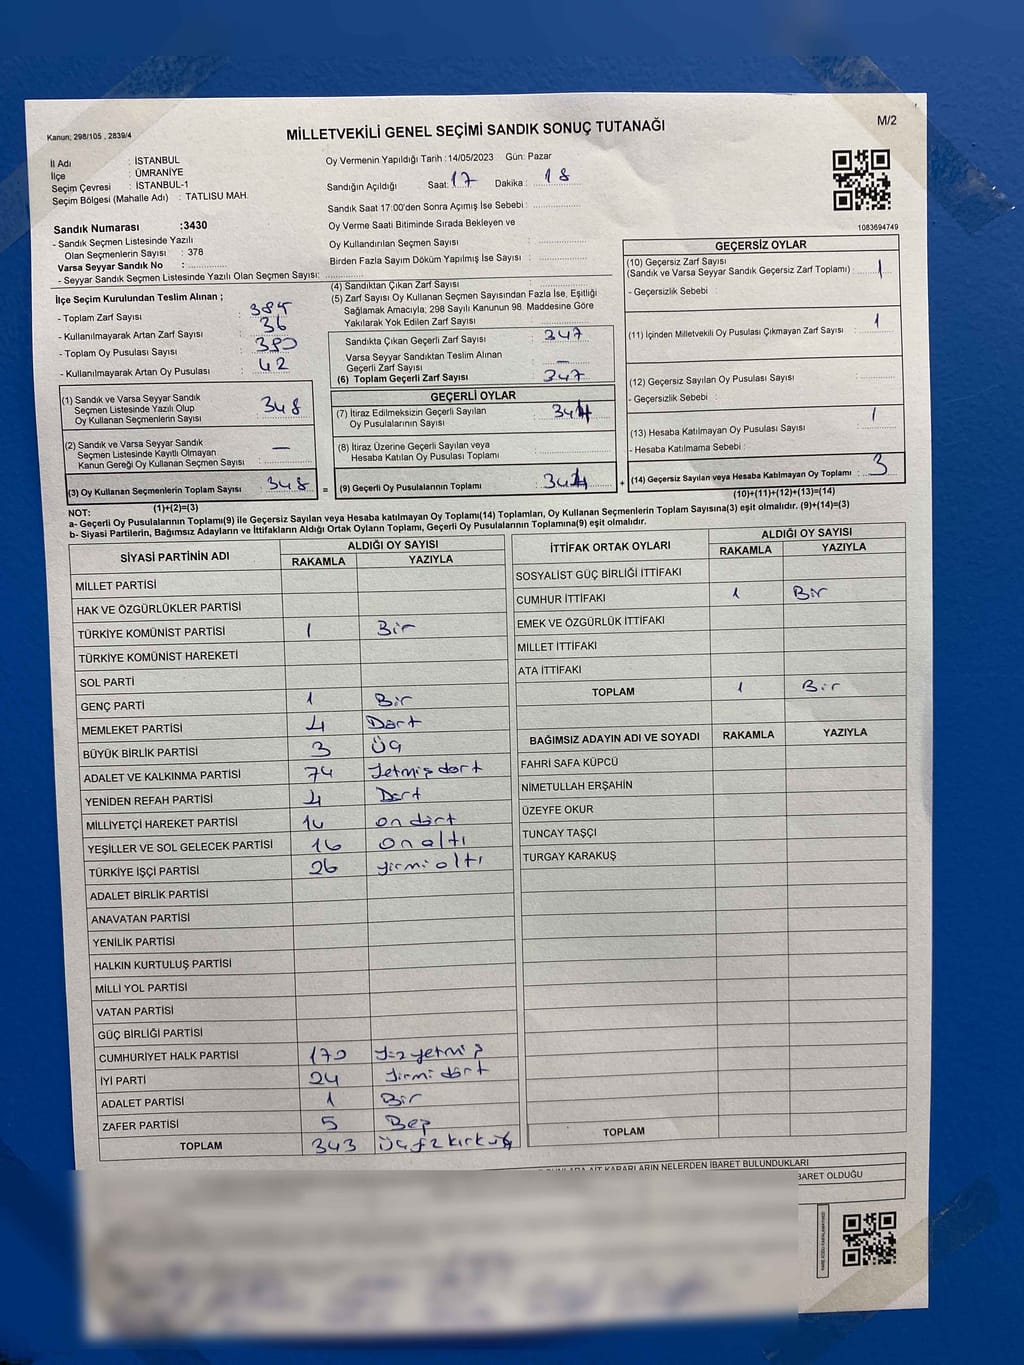 Kanun; 298/105 , 2839/4
MİLLETVEKİLİ GENEL SEÇİMİ SANDIK SONUÇ TUTANAĞI
M/2
İl Adı : İSTANBUL
İlçe : ÜMRANİYE
Seçim Çevresi : İSTANBUL-1
Seçim Bölgesi (Mahalle Adı) : TATLISU MAH.
Oy Vermenin Yapıldığı Tarih : 14/05/2023 Gün: Pazar
Sandığın Açıldığı Saat: 17 Dakika : 18
Sandık Saat 17:00'den Sonra Açımış İse Sebebi :
Oy Verme Saati Bitiminde Sırada Bekleyen ve
Oy Kullandırılan Seçmen Sayısı :
Birden Fazla Sayım Döküm Yapılmış İse Sayısı :
1083694749
Sandık Numarası :3430
- Sandık Seçmen Listesinde Yazılı
Olan Seçmenlerin Sayısı : 378
Varsa Seyyar Sandık No :
- Seyyar Sandık Seçmen Listesinde Yazılı Olan Seçmen Sayısı:
İlçe Seçim Kurulundan Teslim Alınan ;
- Toplam Zarf Sayısı : 384
- Kullanılmayarak Artan Zarf Sayısı : 36
- Toplam Oy Pusulası Sayısı : 390
- Kullanılmayarak Artan Oy Pusulası : 42
(1) Sandık ve Varsa Seyyar Sandık
Seçmen Listesinde Yazılı Olup
Oy Kullanan Seçmenlerin Sayısı : 348
(2) Sandık ve Varsa Seyyar Sandık
Seçmen Listesinde Kayıtlı Olmayan
Kanun Gereği Oy Kullanan Seçmen Sayısı : —
(3) Oy Kullanan Seçmenlerin Toplam Sayısı : 348
(1)+(2)=(3)
(4) Sandıktan Çıkan Zarf Sayısı :
(5) Zarf Sayısı Oy Kullanan Seçmen Sayısından Fazla İse, Eşitliği
Sağlamak Amacıyla; 298 Sayılı Kanunun 98. Maddesine Göre
Yakılarak Yok Edilen Zarf Sayısı :
Sandıkta Çıkan Geçerli Zarf Sayısı : 347
Varsa Seyyar Sandıktan Teslim Alınan
Geçerli Zarf Sayısı : —
(6) Toplam Geçerli Zarf Sayısı : 347
GEÇERLİ OYLAR
(7) İtiraz Edilmeksizin Geçerli Sayılan
Oy Pusulalarının Sayısı : 344
(8) İtiraz Üzerine Geçerli Sayılan veya
Hesaba Katılan Oy Pusulası Toplamı :
= (9) Geçerli Oy Pusulalarının Toplamı : 344
GEÇERSİZ OYLAR
(10) Geçersiz Zarf Sayısı
(Sandık ve Varsa Seyyar Sandık Geçersiz Zarf Toplamı) : 1
- Geçersizlik Sebebi :
(11) İçinden Milletvekili Oy Pusulası Çıkmayan Zarf Sayısı : 1
(12) Geçersiz Sayılan Oy Pusulası Sayısı :
- Geçersizlik Sebebi :
(13) Hesaba Katılmayan Oy Pusulası Sayısı : 1
- Hesaba Katılmama Sebebi :
+ (14) Geçersiz Sayılan veya Hesaba Katılmayan Oy Toplamı : 3
(10)+(11)+(12)+(13)=(14)
NOT:
a- Geçerli Oy Pusulalarının Toplamı(9) ile Geçersiz Sayılan veya Hesaba katılmayan Oy Toplamı(14) Toplamları, Oy Kullanan Seçmenlerin Toplam Sayısına(3) eşit olmalıdır. (9)+(14)=(3)
b- Siyasi Partilerin, Bağımsız Adayların ve İttifakların Aldığı Ortak Oyların Toplamı, Geçerli Oy Pusulalarının Toplamına(9) eşit olmalıdır.
SİYASİ PARTİNİN ADI ALDIĞI OY SAYISI
RAKAMLA YAZIYLA
MİLLET PARTİSİ
HAK VE ÖZGÜRLÜKLER PARTİSİ
TÜRKİYE KOMÜNİST PARTİSİ 1 Bir
TÜRKİYE KOMÜNİST HAREKETİ
SOL PARTİ
GENÇ PARTİ 1 Bir
MEMLEKET PARTİSİ 4 Dört
BÜYÜK BİRLİK PARTİSİ 3 Üç
ADALET VE KALKINMA PARTİSİ 74 Yetmiş dört
YENİDEN REFAH PARTİSİ 4 Dört
MİLLİYETÇİ HAREKET PARTİSİ 14 on dört
YEŞİLLER VE SOL GELECEK PARTİSİ 16 on altı
TÜRKİYE İŞÇİ PARTİSİ 26 yirmi altı
ADALET BİRLİK PARTİSİ
ANAVATAN PARTİSİ
YENİLİK PARTİSİ
HALKIN KURTULUŞ PARTİSİ
MİLLİ YOL PARTİSİ
VATAN PARTİSİ
GÜÇ BİRLİĞİ PARTİSİ
CUMHURİYET HALK PARTİSİ 170 Yüz yetmiş
İYİ PARTİ 24 Yirmi dört
ADALET PARTİSİ 1 Bir
ZAFER PARTİSİ 5 Beş
TOPLAM 343 Üçyüz kırküç
İTTİFAK ORTAK OYLARI ALDIĞI OY SAYISI
RAKAMLA YAZIYLA
SOSYALİST GÜÇ BİRLİĞİ İTTİFAKI
CUMHUR İTTİFAKI 1 Bir
EMEK VE ÖZGÜRLÜK İTTİFAKI
MİLLET İTTİFAKI
ATA İTTİFAKI
TOPLAM 1 Bir
BAĞIMSIZ ADAYIN ADI VE SOYADI RAKAMLA YAZIYLA
FAHRİ SAFA KÜPCÜ
NİMETULLAH ERŞAHİN
ÜZEYFE OKUR
TUNCAY TAŞÇI
TURGAY KARAKUŞ
TOPLAM
KARARLARIN NELERDEN İBARET BULUNDUKLARI
BARET OLDUĞU